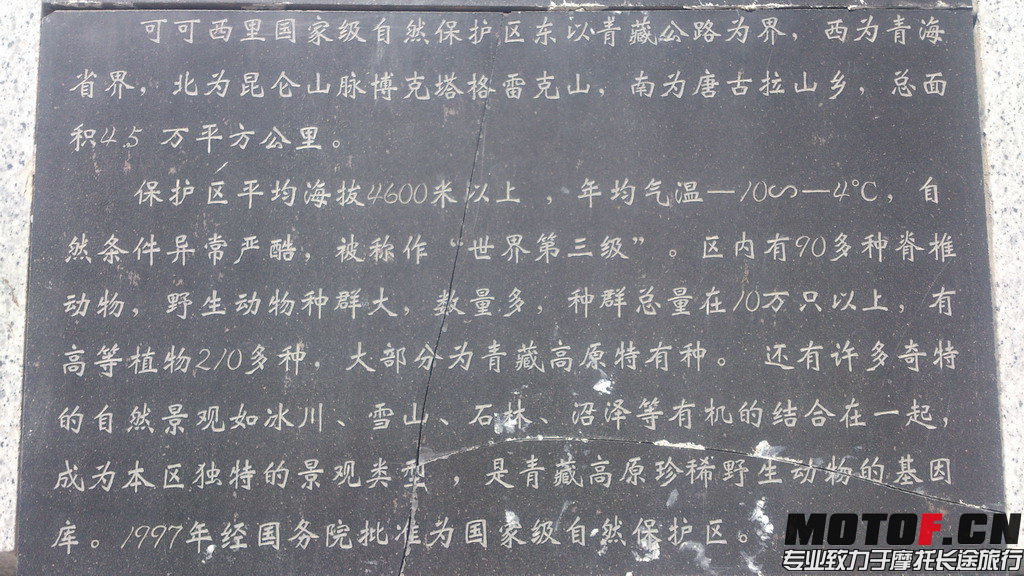 可可西里国家级自然保护区东以青藏公路为界，西为青海
省界，北为昆仑山脉博克塔格雷克山，南为唐古拉山乡，总面
积4.5 万平方公里。
保护区平均海拔4600米以上，年均气温—10∽—4℃，自
然条件异常严酷，被称作“世界第三级”。区内有90多种脊椎
动物，野生动物种群大，数量多，种群总量在10万只以上，有
高等植物210多种，大部分为青藏高原特有种。还有许多奇特
的自然景观如冰川、雪山、石林、沼泽等有机的结合在一起，
成为本区独特的景观类型，是青藏高原珍稀野生动物的基因
库。1997年经国务院批准为国家级自然保护区。
MOTOF.CN
专业致力于摩托长途旅行